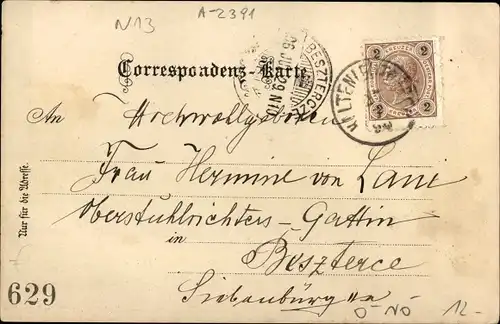 N13
A-2391
Correspondenz-Karte.
BESZTERCZE
2 KREUZER 2
2 2
An Hochwohlgeboren
Frau Hermine von Lani
Oberstuhlrichters-Gattin
in
Beszterce
Siebenbürgen
Nur für die Adresse.
629
Ö-NÖ
12.-